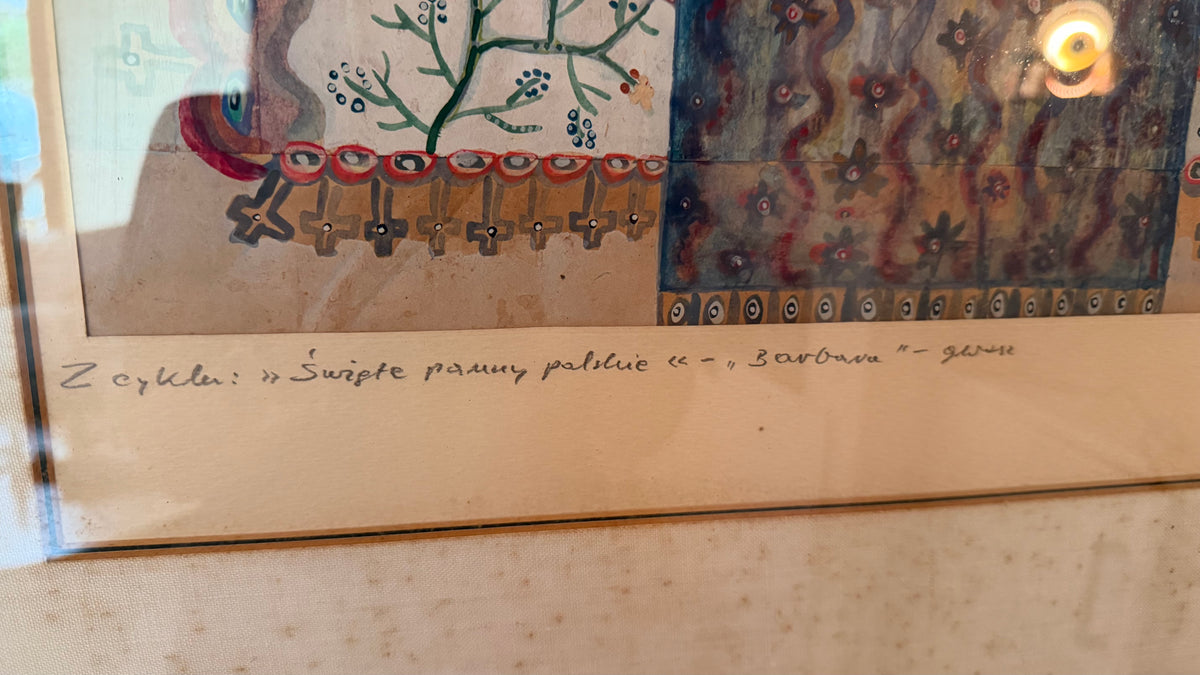 Z cyklu: » Święte panny polskie « - „ Barbara " - gwasz